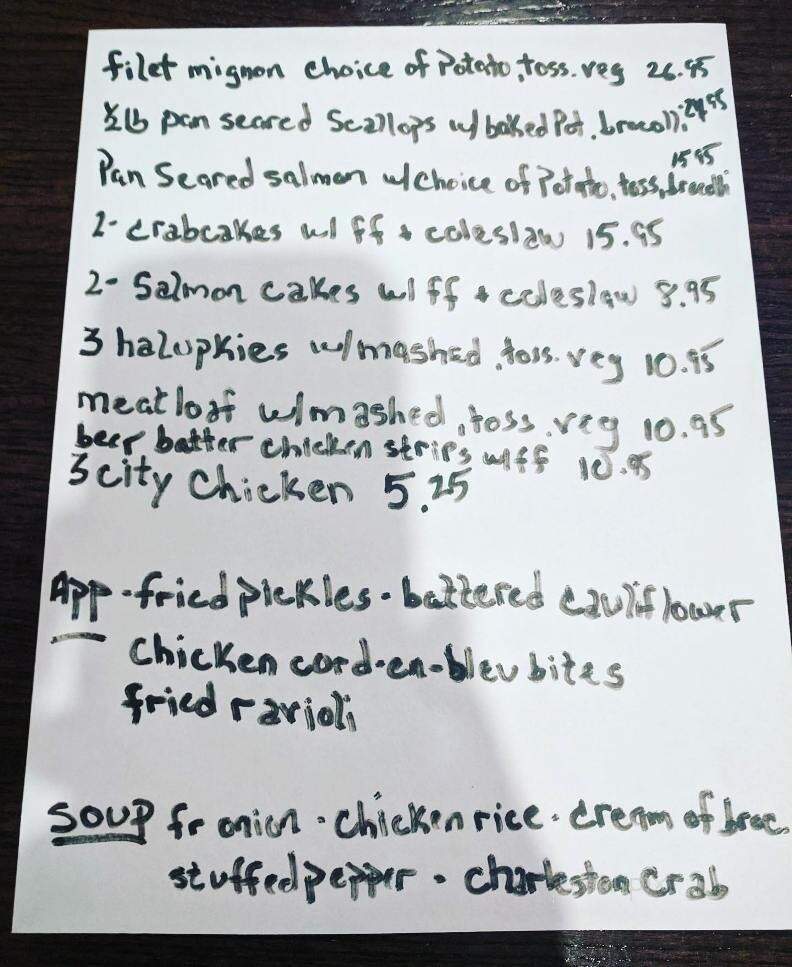 filet mignon choice of Potato, toss. veg 26.95
½ lb pan seared Scallops w/ baked Pot, brocolli 24.95
15.95
Pan Seared salmon w/choice of Potato, toss, brocolli
2- crabcakes w/ ff + coleslaw 15.95
2- Salmon cakes w/ ff + coleslaw 8.95
3 halupkies w/mashed, toss. veg 10.95
meatloaf w/mashed, toss. veg 10.95
beer batter chicken strips w/ff 10.95
3 city Chicken 5.25
APP - fried pickles - battered cauliflower
Chicken cord-en-bleu bites
fried ravioli
SOUP fr onion - chicken rice - cream of broc.
stuffed pepper - Charleston Crab